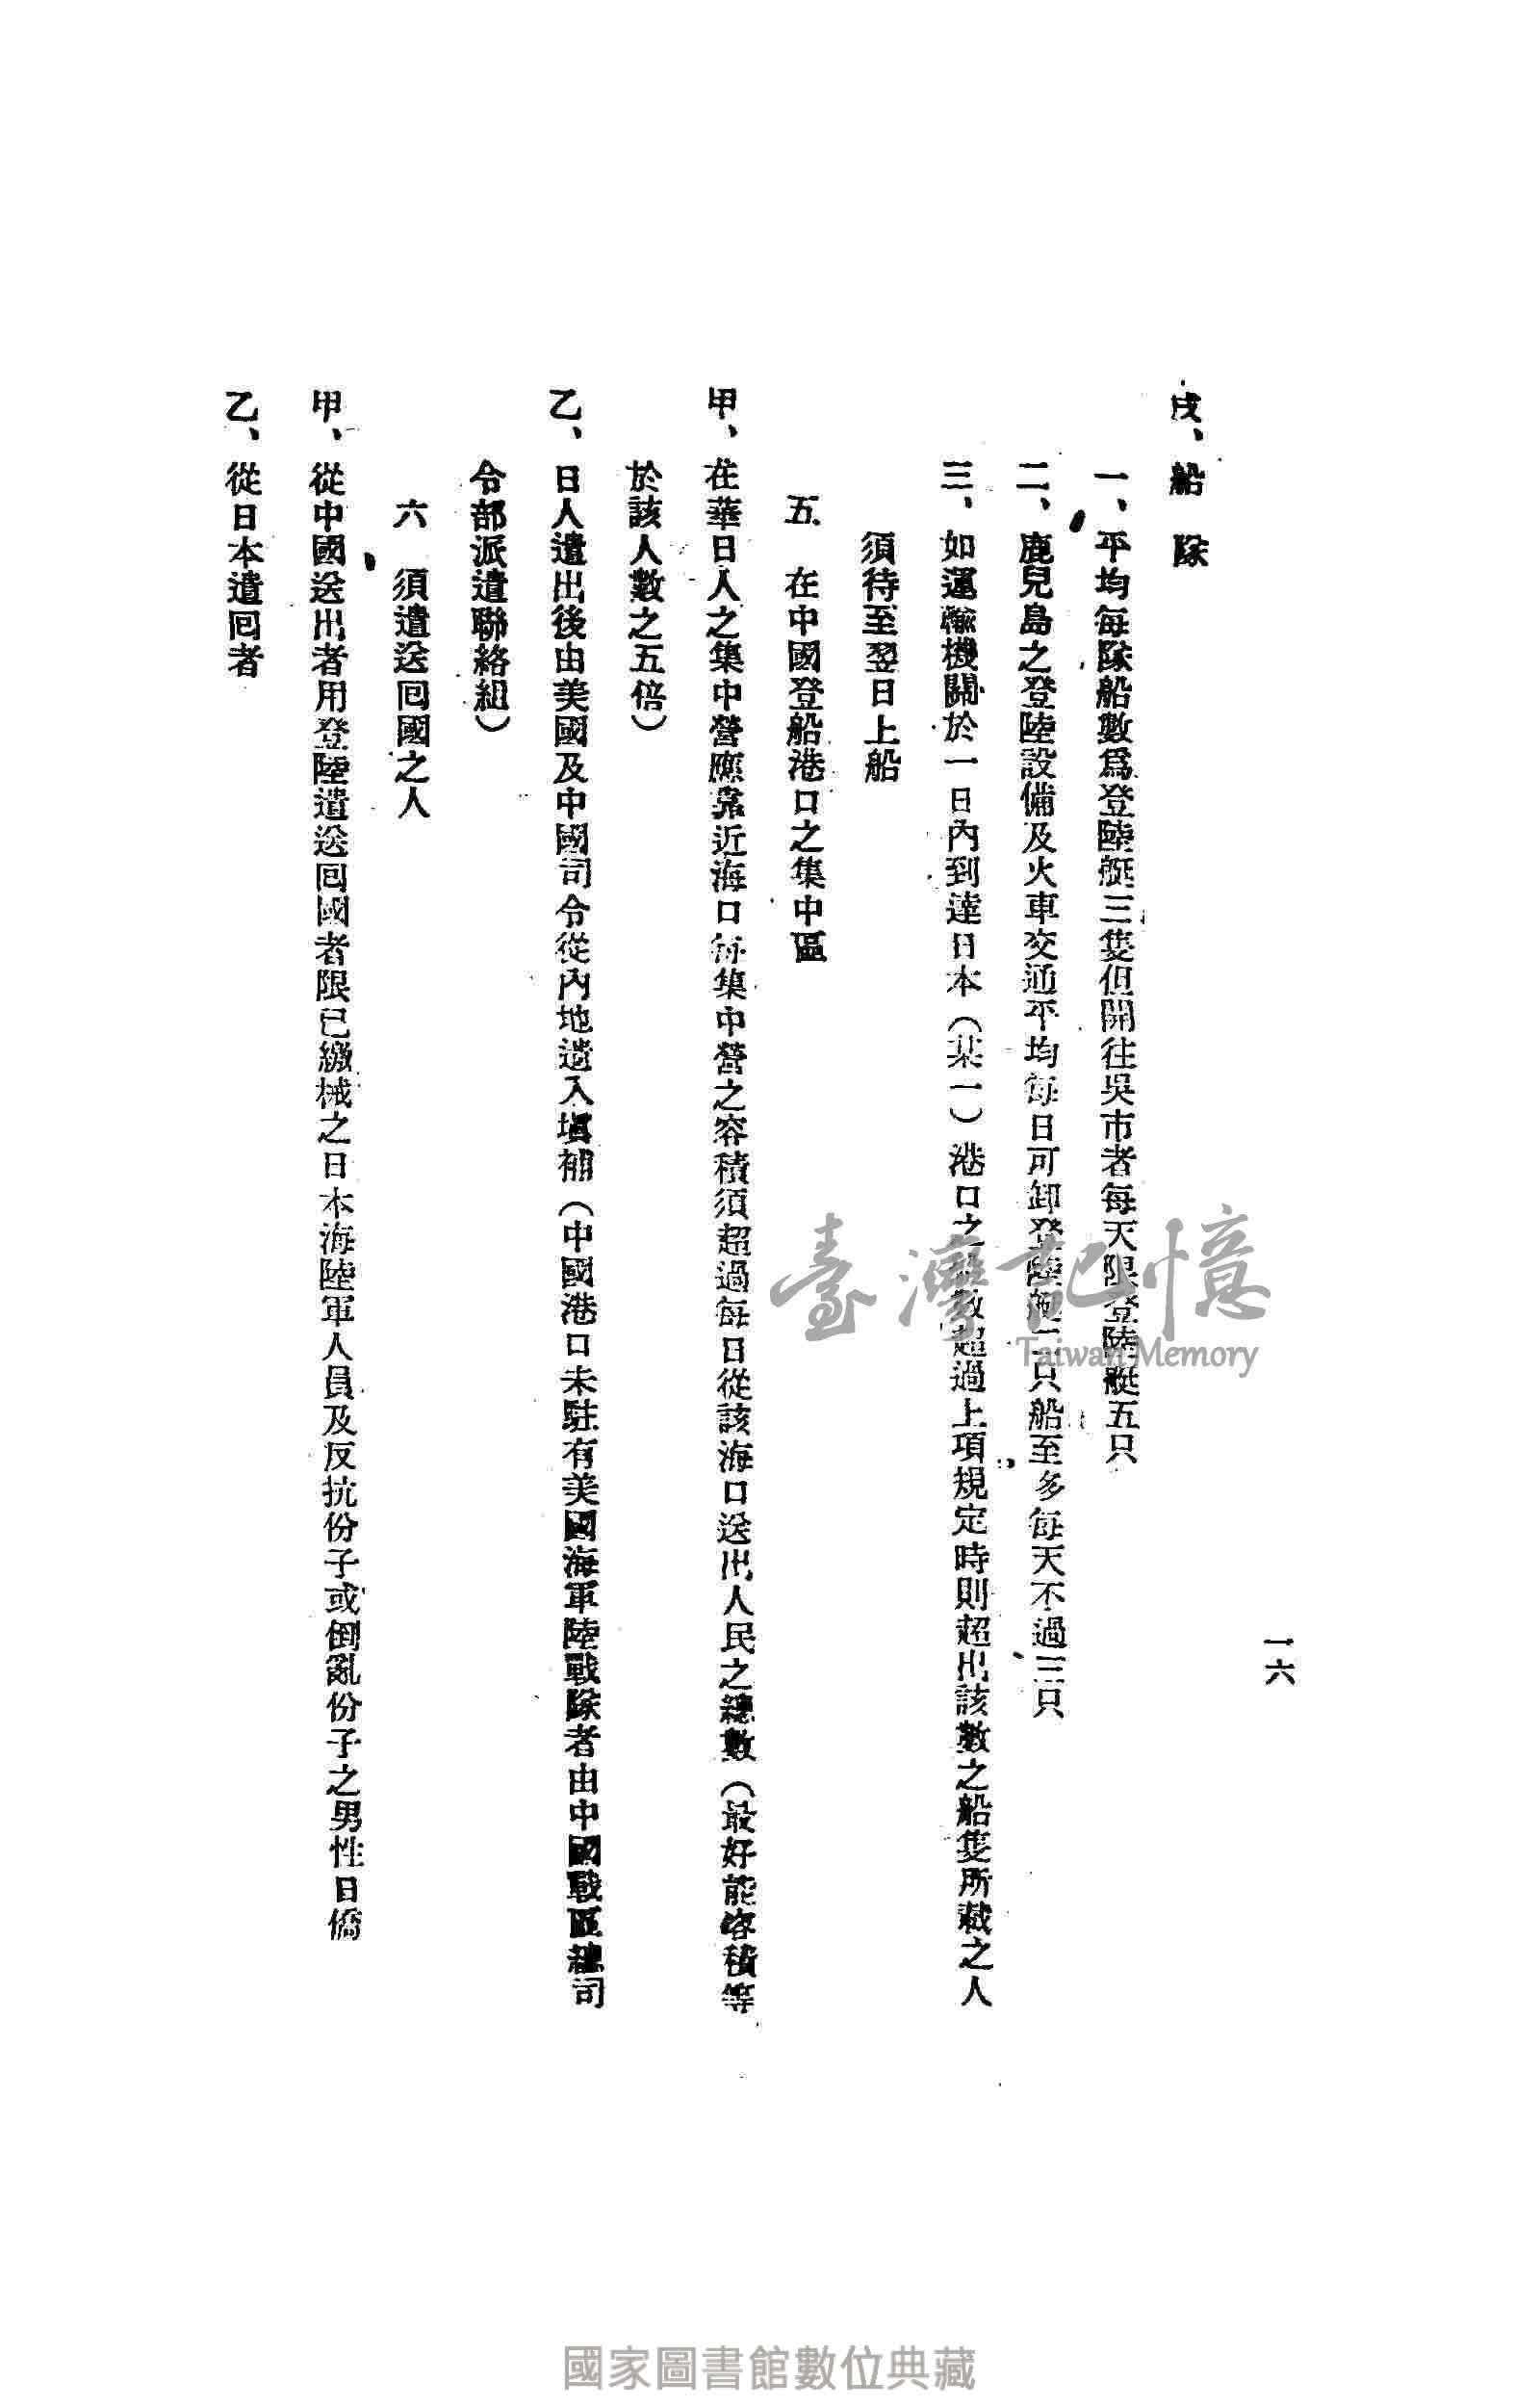 一六
戌、船　隊
一、平均每隊船數爲登陸艇三隻但開往吳市者每天限登陸艇五只
二、鹿兒島之登陸設備及火車交通平均每日可卸登陸艇二只船至多每天不過三只
三、如運輸機關於一日內到達日本（某一）港口之船數超過上項規定時則超出該數之船隻所載之人
須待至翌日上船
五　在中國登船港口之集中區
甲、在華日人之集中營應靠近海口每集中營之容積須超過每日從該海口送出人民之總數（最好能容積等
於該人數之五倍）
乙、日人遣出後由美國及中國司令從內地遣入塡補（中國港口未駐有美國海軍陸戰隊者由中國戰區總司
令部派遣聯絡組）
六　須遣送囘國之人
甲、從中國送出者用登陸遣送囘國者限已繳械之日本海陸軍人員及反抗份子或倒亂份子之男性日僑
乙、從日本遣囘者
臺灣記憶
Taiwan Memory
國家圖書館數位典藏